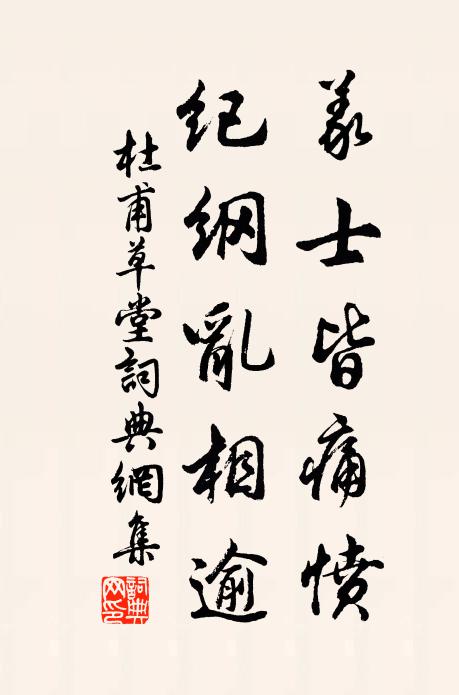 義士皆痛憤
紀綱亂相逾
杜甫草堂詞典網集
詞典網印